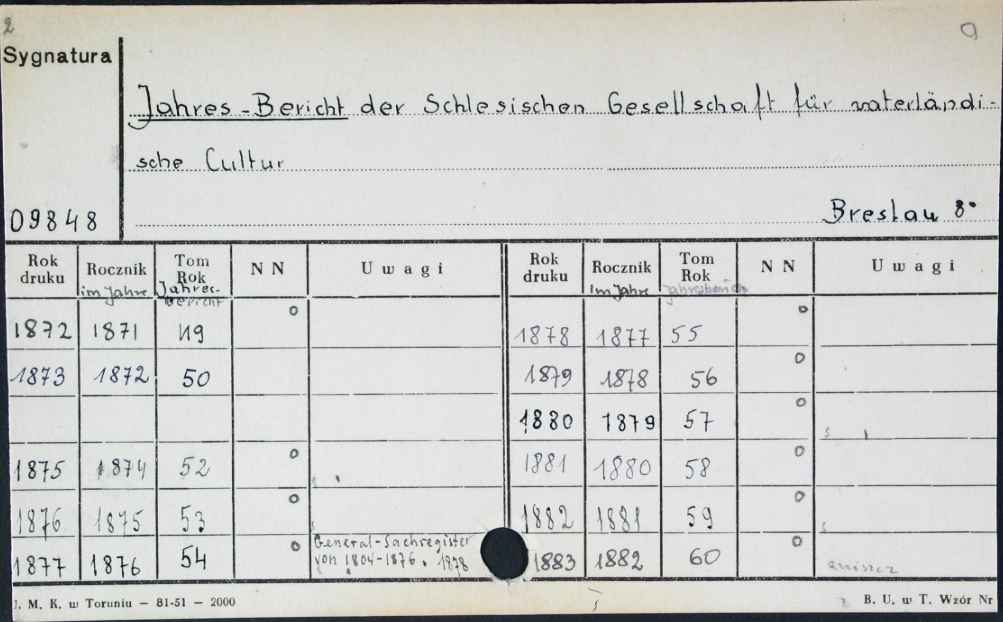 2
Sygnatura
Jahres-Bericht der Schlesischen Gesellschaft für vaterländi-
sche Cultur
09848
Breslau 8°
Rok druku Rocznik Tom Rok N N Uwagi Rok druku Rocznik Tom Rok N N Uwagi
im Jahre Jahres-Bericht im Jahre
1872 1871 49 o 1878 1877 55 o
1873 1872 50 1879 1878 56 o
1880 1879 57 o
1875 1874 52 o 1881 1880 58 o
1876 1875 53 o 1882 1881 59 o
1877 1876 54 o General-Sachregister von 1804-1876. 1878 1883 1882 60 o
J. M. K. w Toruniu — 81-51 — 2000 B. U. w T. Wzór Nr